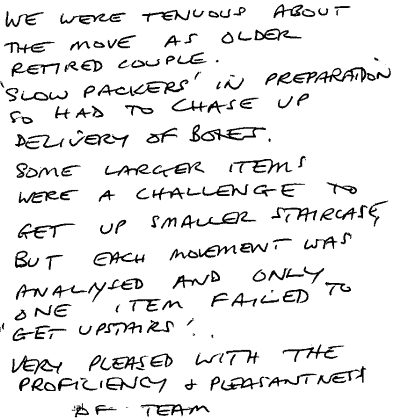 WE WERE TENUOUS ABOUT
THE MOVE AS OLDER
RETIRED COUPLE.
'SLOW PACKERS' IN PREPARATION
SO HAD TO CHASE UP
DELIVERY OF BOXES.
SOME LARGER ITEMS
WERE A CHALLENGE TO
GET UP SMALLER STAIRCASE,
BUT EACH MOVEMENT WAS
ANALYSED AND ONLY
ONE ITEM FAILED TO
'GET UPSTAIRS'.
VERY PLEASED WITH THE
PROFICIENCY & PLEASANTNESS
OF TEAM